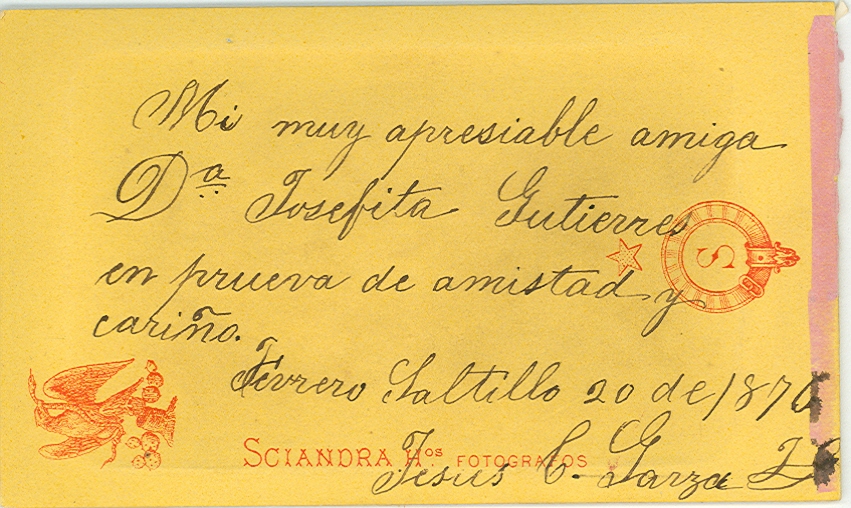 Mi muy apresiable amiga
Dª Josefita Gutierres
en prueva de amistad y
cariño.
Fevrero Saltillo 20 de 1876
SCIANDRA Hos FOTOGRAFOS
Jesús C. Garza
S